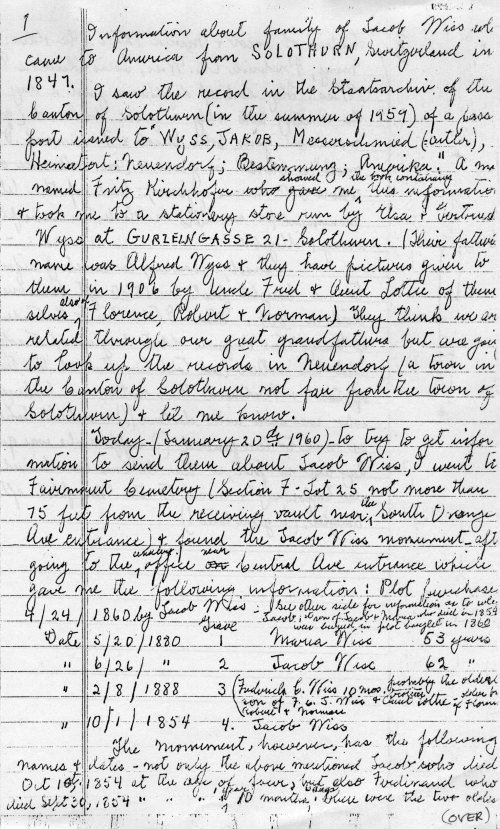 1
Information about family of Jacob Wiss wh
came to America from SOLOTHURN, Switzerland in
1847.
I saw the record in the Staatsarchiv of the
Canton of Solothurn (in the summer of 1959) of a pass
port issued to "WYSS, JAKOB, Messerschmied (=cutler),
Heimatort: Neuendorf; Bestemmung; Amerika." A ma
named Fritz Kirchhofer who showed gave me the book containing this information
& took me to a stationary store run by Elsa & Gertrud
Wyss at GURZELNGASSE 21- Solothurn. (Their father's
name was Alfred Wyss & they have pictures given to
them in 1906 by Uncle Fred & Aunt Lottie of them
selves, also of Florence, Robert & Norman) They think we are
related through our great grandfathers but are goin
to look up the records in Neuendorf (a town in
the Canton of Solothurn not far from the town of
Solothurn) & let me know.
Today-(January 20th 1960)-to try to get infor
mation to send them about Jacob Wiss, I went to
Fairmount Cemetery (Section F-Lot 25 not more than
75 feet from the receiving vault near the South Orange
Ave entrance) & found the Jacob Wiss monument-aft
going to the office near Central Ave entrance which
gave me the following information: Plot purchase
4/24/1860 by Jacob Wiss - See other side for information as to why
Jacob, son of Jacob & Maria who died in 1854
was buried in plot bought in 1860
Date Grave
5/20/1880 1 Maria Wiss 53 years
" 6/26/ " 2 Jacob Wiss 62 "
" 2/8/1888 3 (Frederick C. Wiss 10 mos. probably the oldest
son of F. C. J. Wiss & Aunt Lottie - brother older to Florence
Robert & Norman
" 10/1/1854 4. Jacob Wiss
The monument, however, has the following
names & dates - not only the above mentioned Jacob who died
Oct 1st, 1854 at the age of four, but also Ferdinand who
died Sept 30, 1854 " " " " 1 year 10 months days. These were the two oldes
(OVER)